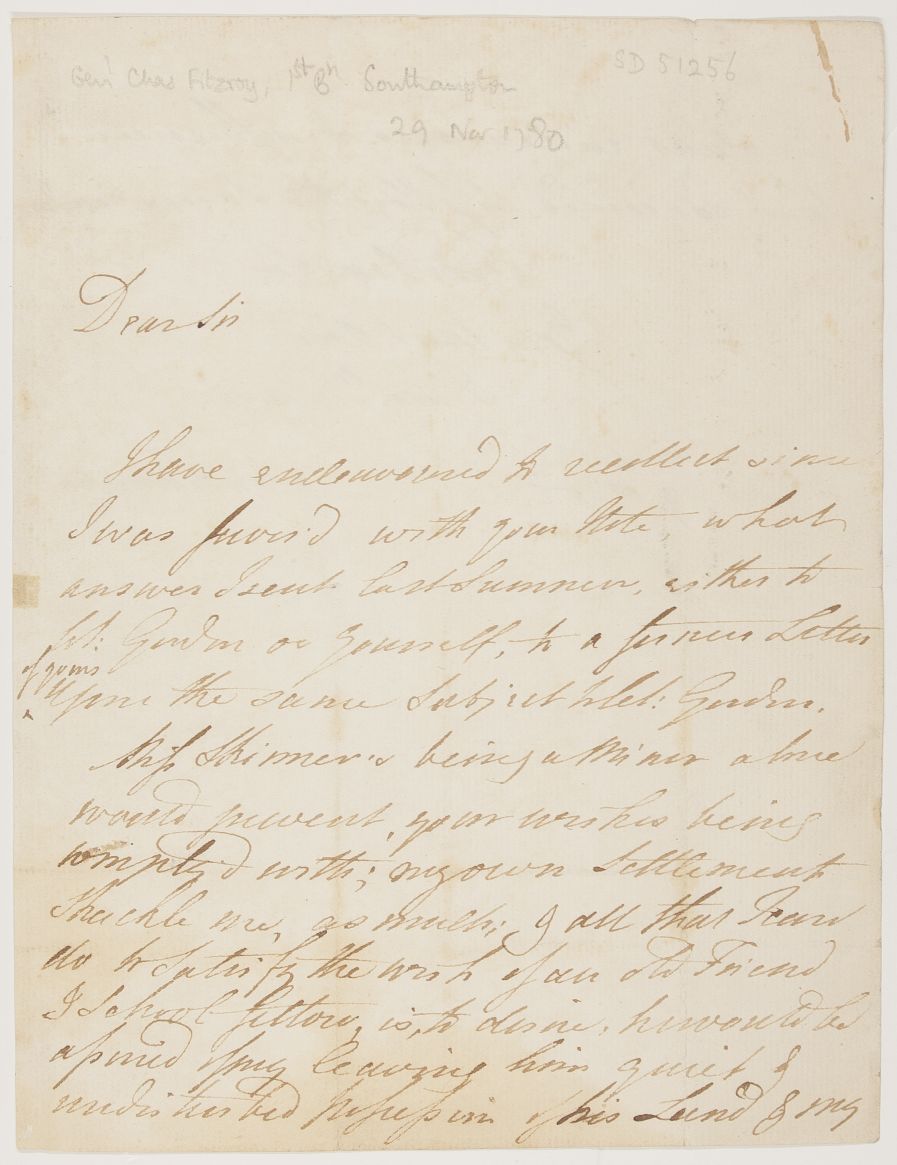 Genl Chas Fitzroy, 1st Bn Southampton
SD 51256
29 Nov 1780
Dear Sir
I have endeavoured to recollect since
I was favor'd with your Note, what
answer I sent last Summer, either to
Gordon or yourself, to a former Letter
of yours
upon the same Subject to Gordon.
Miss Skinner's being a Minor alone
would prevent your wishes being
comply'd with; my own Settlement
Shackle me, as much; & all that I can
do to Satisfy the wish of an old Friend
& School fellow, is, to desire, he would be
assured of my leaving him quiet &
undisturbed possession of his Land & my